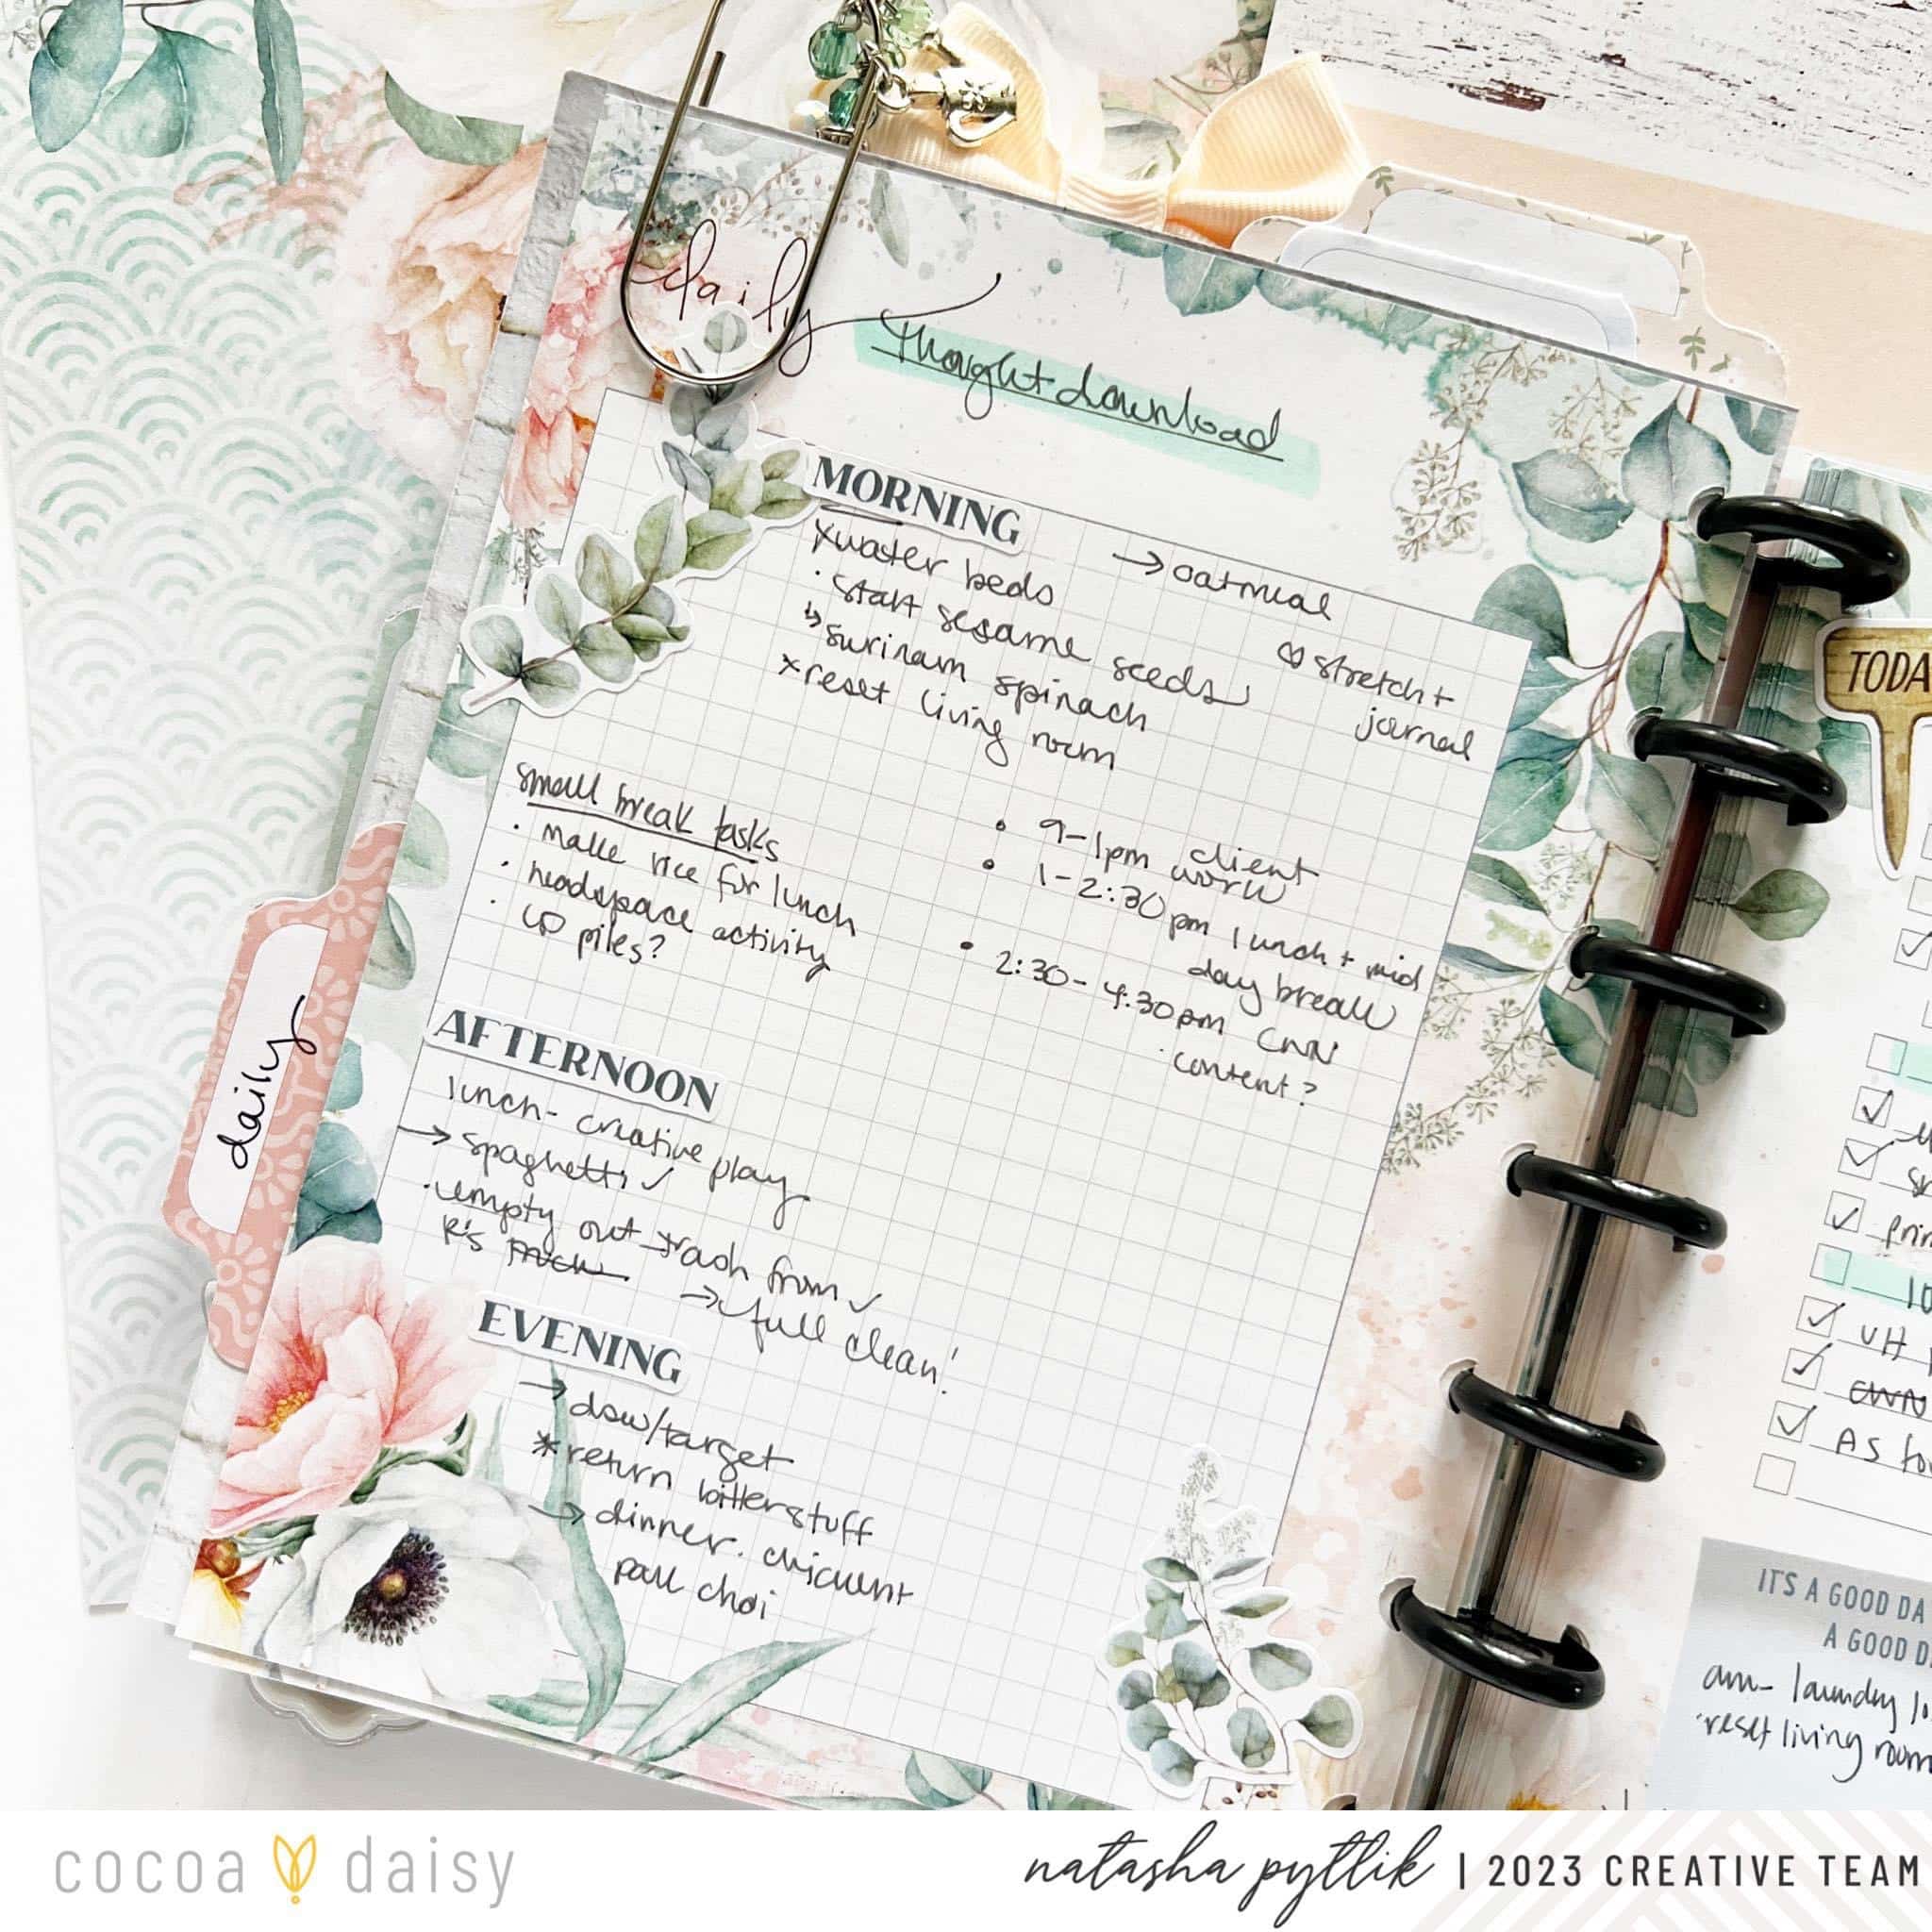 daily
thought download
MORNING
*water beds
· start sesame seeds
↳ surinam spinach
*reset living room
→ oatmeal
♡ stretch +
journal
small break tasks
· make rice for lunch
· headspace activity
· piles?
• 9-1pm client
work
• 1-2:30pm lunch + mid
day break
• 2:30-4:30pm
· content?
AFTERNOON
lunch- creative play
→ spaghetti ✓
· empty out trash from ✓
R's
→ full clean!
EVENING
→ /target
*return stuff
→ dinner.
choi
daily
TODA
✓ UH
✓ AS
IT'S A GOOD DA
A GOOD D
am- laundry lo
·reset living room
cocoa daisy
natasha pytlik | 2023 CREATIVE TEAM